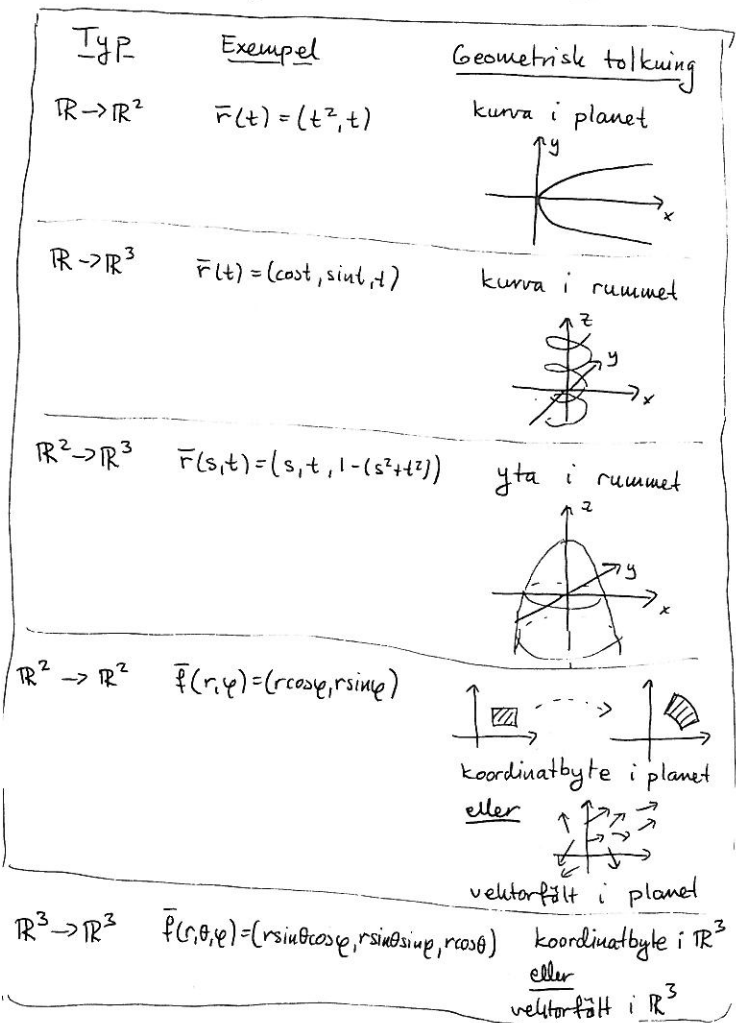 Typ Exempel Geometrisk tolkning
ℝ→ℝ² r̄(t)=(t²,t) kurva i planet
y
x
ℝ→ℝ³ r̄(t)=(cost,sint,t) kurva i rummet
z
y
x
ℝ²→ℝ³ r̄(s,t)=(s,t,1-(s²+t²)) yta i rummet
z
y
x
ℝ²→ℝ² f̄(r,φ)=(rcosφ,rsinφ)
koordinatbyte i planet
eller
vektorfält i planet
ℝ³→ℝ³ f̄(r,θ,φ)=(rsinθcosφ,rsinθsinφ,rcosθ) koordinatbyte i ℝ³
eller
vektorfält i ℝ³